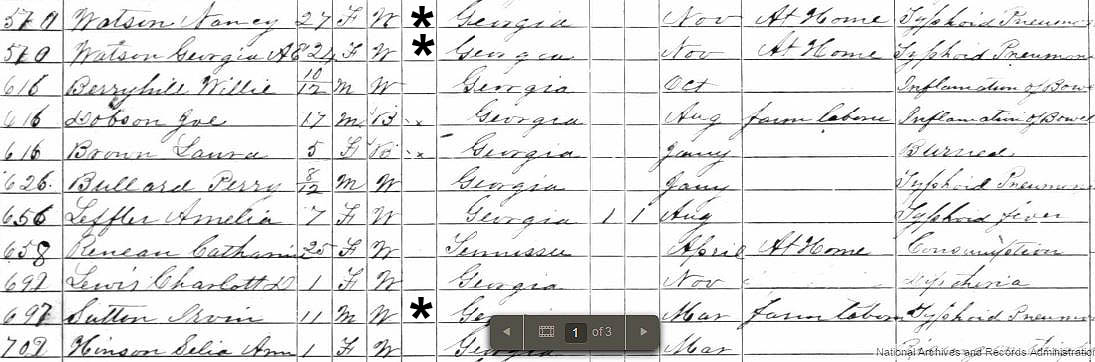 510 Watson Nancy 27 F W * Georgia Nov At Home Typhoid Pneumon
510 Watson Georgia A E 24 F W * Georgia Nov At Home Typhoid Pneumon
616 Berryhill Willie 10/12 M W Georgia Oct Inflamation of Bowe
616 Dobson Joe 17 M B x Georgia Aug farm labore Inflamation of Bowel
616 Brown Laura 5 F B x Georgia Jany Burned
626. Bullard Perry 8/12 M W Georgia Jany Typhoid Pneumon
656 Leffler Amelia 7 F W Georgia 1 1 Aug Typhoid fever
658 Reneau Catharin 25 F W Tennissee April At Home Consumption
692 Lewis Charlott D 1 F W Georgia Nov
697 Sutton Irvin 11 M W * Ge Mar farm labore Typhoid Pneumon
702 Hinson Selia Ann 1 F W Georgia Mar
1 of 3
National Archives and Records Administratio